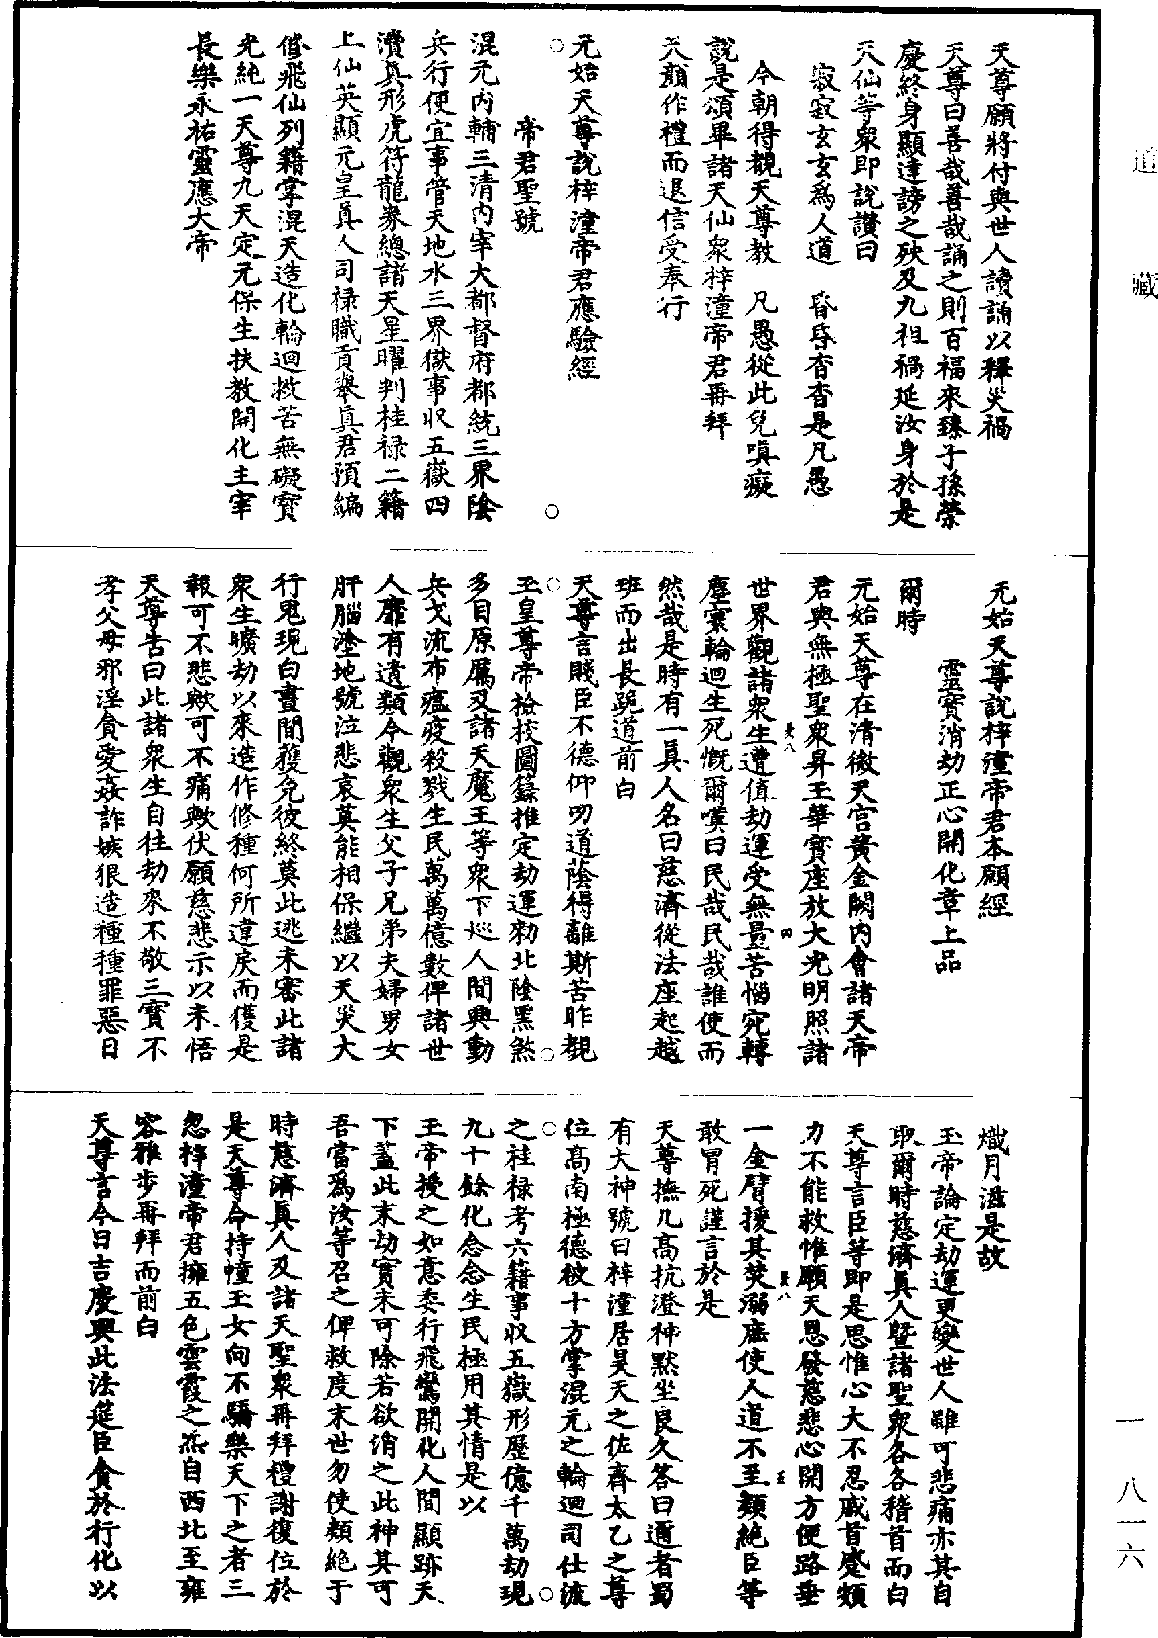 道藏
一八一六
天尊願將付與世人讀誦以釋災禍
天尊曰善哉善哉誦之則百福來臻子孫榮
慶終身顯達謗之殃及九祖禍延汝身於是
天仙等衆即說讚曰
寂寂玄玄爲人道　昏昏杳杳是凡愚
今朝得覩天尊教　凡愚從此免嗔癡
說是頌畢諸天仙衆梓潼帝君再拜
天顏作禮而退信受奉行
元始天尊說梓潼帝君應驗經
帝君聖號
混元內輔三清內宰大都督府都統三界陰
兵行便宜事管天地水三界獄事收五嶽四
瀆真形虎符龍券總諸天星曜判桂祿二籍
上仙英顯元皇真人司祿職貢舉真君預編
修飛仙列籍掌混天造化輪迴救苦無礙實
光純一天尊九天定元保生扶教開化主宰
長樂永祐靈應大帝
元始天尊說梓潼帝君本願經
靈寶消劫正心開化章上品
爾時
元始天尊在清微天宮黃金闕內會諸天帝
君與無極聖衆昇玉華寶座放大光明照諸
世界觀諸衆生遭值劫運受無量苦惱宛轉
塵寰輪迴生死慨爾嘆曰民哉民哉誰使而
然哉是時有一真人名曰慈濟從法座起越
班而出長跪道前白
天尊言賤臣不德仰叨道蔭得離斯苦昨覩
玉皇尊帝檢校圖籙推定劫運勑北陰黑煞
多目原厲及諸天魔王等衆下巡人間興動
兵戈流布瘟疫殺戮生民萬萬億數俾諸世
人靡有遺類今觀衆生父子兄弟夫婦男女
肝腦塗地號泣悲哀莫能相保繼以天災大
行鬼現白晝間獲免彼終莫此逃未審此諸
衆生曠劫以來造作修種何所違戾而獲是
報可不悲歟可不痛歟伏願慈悲示以未悟
天尊告曰此諸衆生自往劫來不敬三寶不
孝父母邪淫貪愛姦詐嫉狠造種種罪惡日
熾月滋是故
玉帝論定劫運更變世人雖可悲痛亦其自
取爾時慈濟真人暨諸聖衆各各稽首而白
天尊言臣等即是思惟心大不忍戚首蹙頞
力不能救惟願天恩發慈悲心開方便路垂
一金臂援其焚溺庶使人道不至類絕臣等
敢冒死謹言於是
天尊撫几高抗澄神默坐良久答曰邇者蜀
有大神號曰梓潼居昊天之佐齊太乙之尊
位高南極德被十方掌混元之輪迴司仕流
之桂祿考六籍事收五嶽形歷億千萬劫現
九十餘化念念生民極用其情是以
玉帝授之如意委行飛鸞開化人間顯跡天
下蓋此末劫實未可除若欲消之此神其可
吾當爲汝等召之俾救度末世勿使類絕于
時慈濟真人及諸天聖衆再拜禮謝復位於
是天尊令持幢玉女向不驕樂天下之者三
忽梓潼帝君擁五色雲霞之炁自西北至雍
容雅步再拜而前白
天尊言今日吉慶興此法筵臣貪於行化以